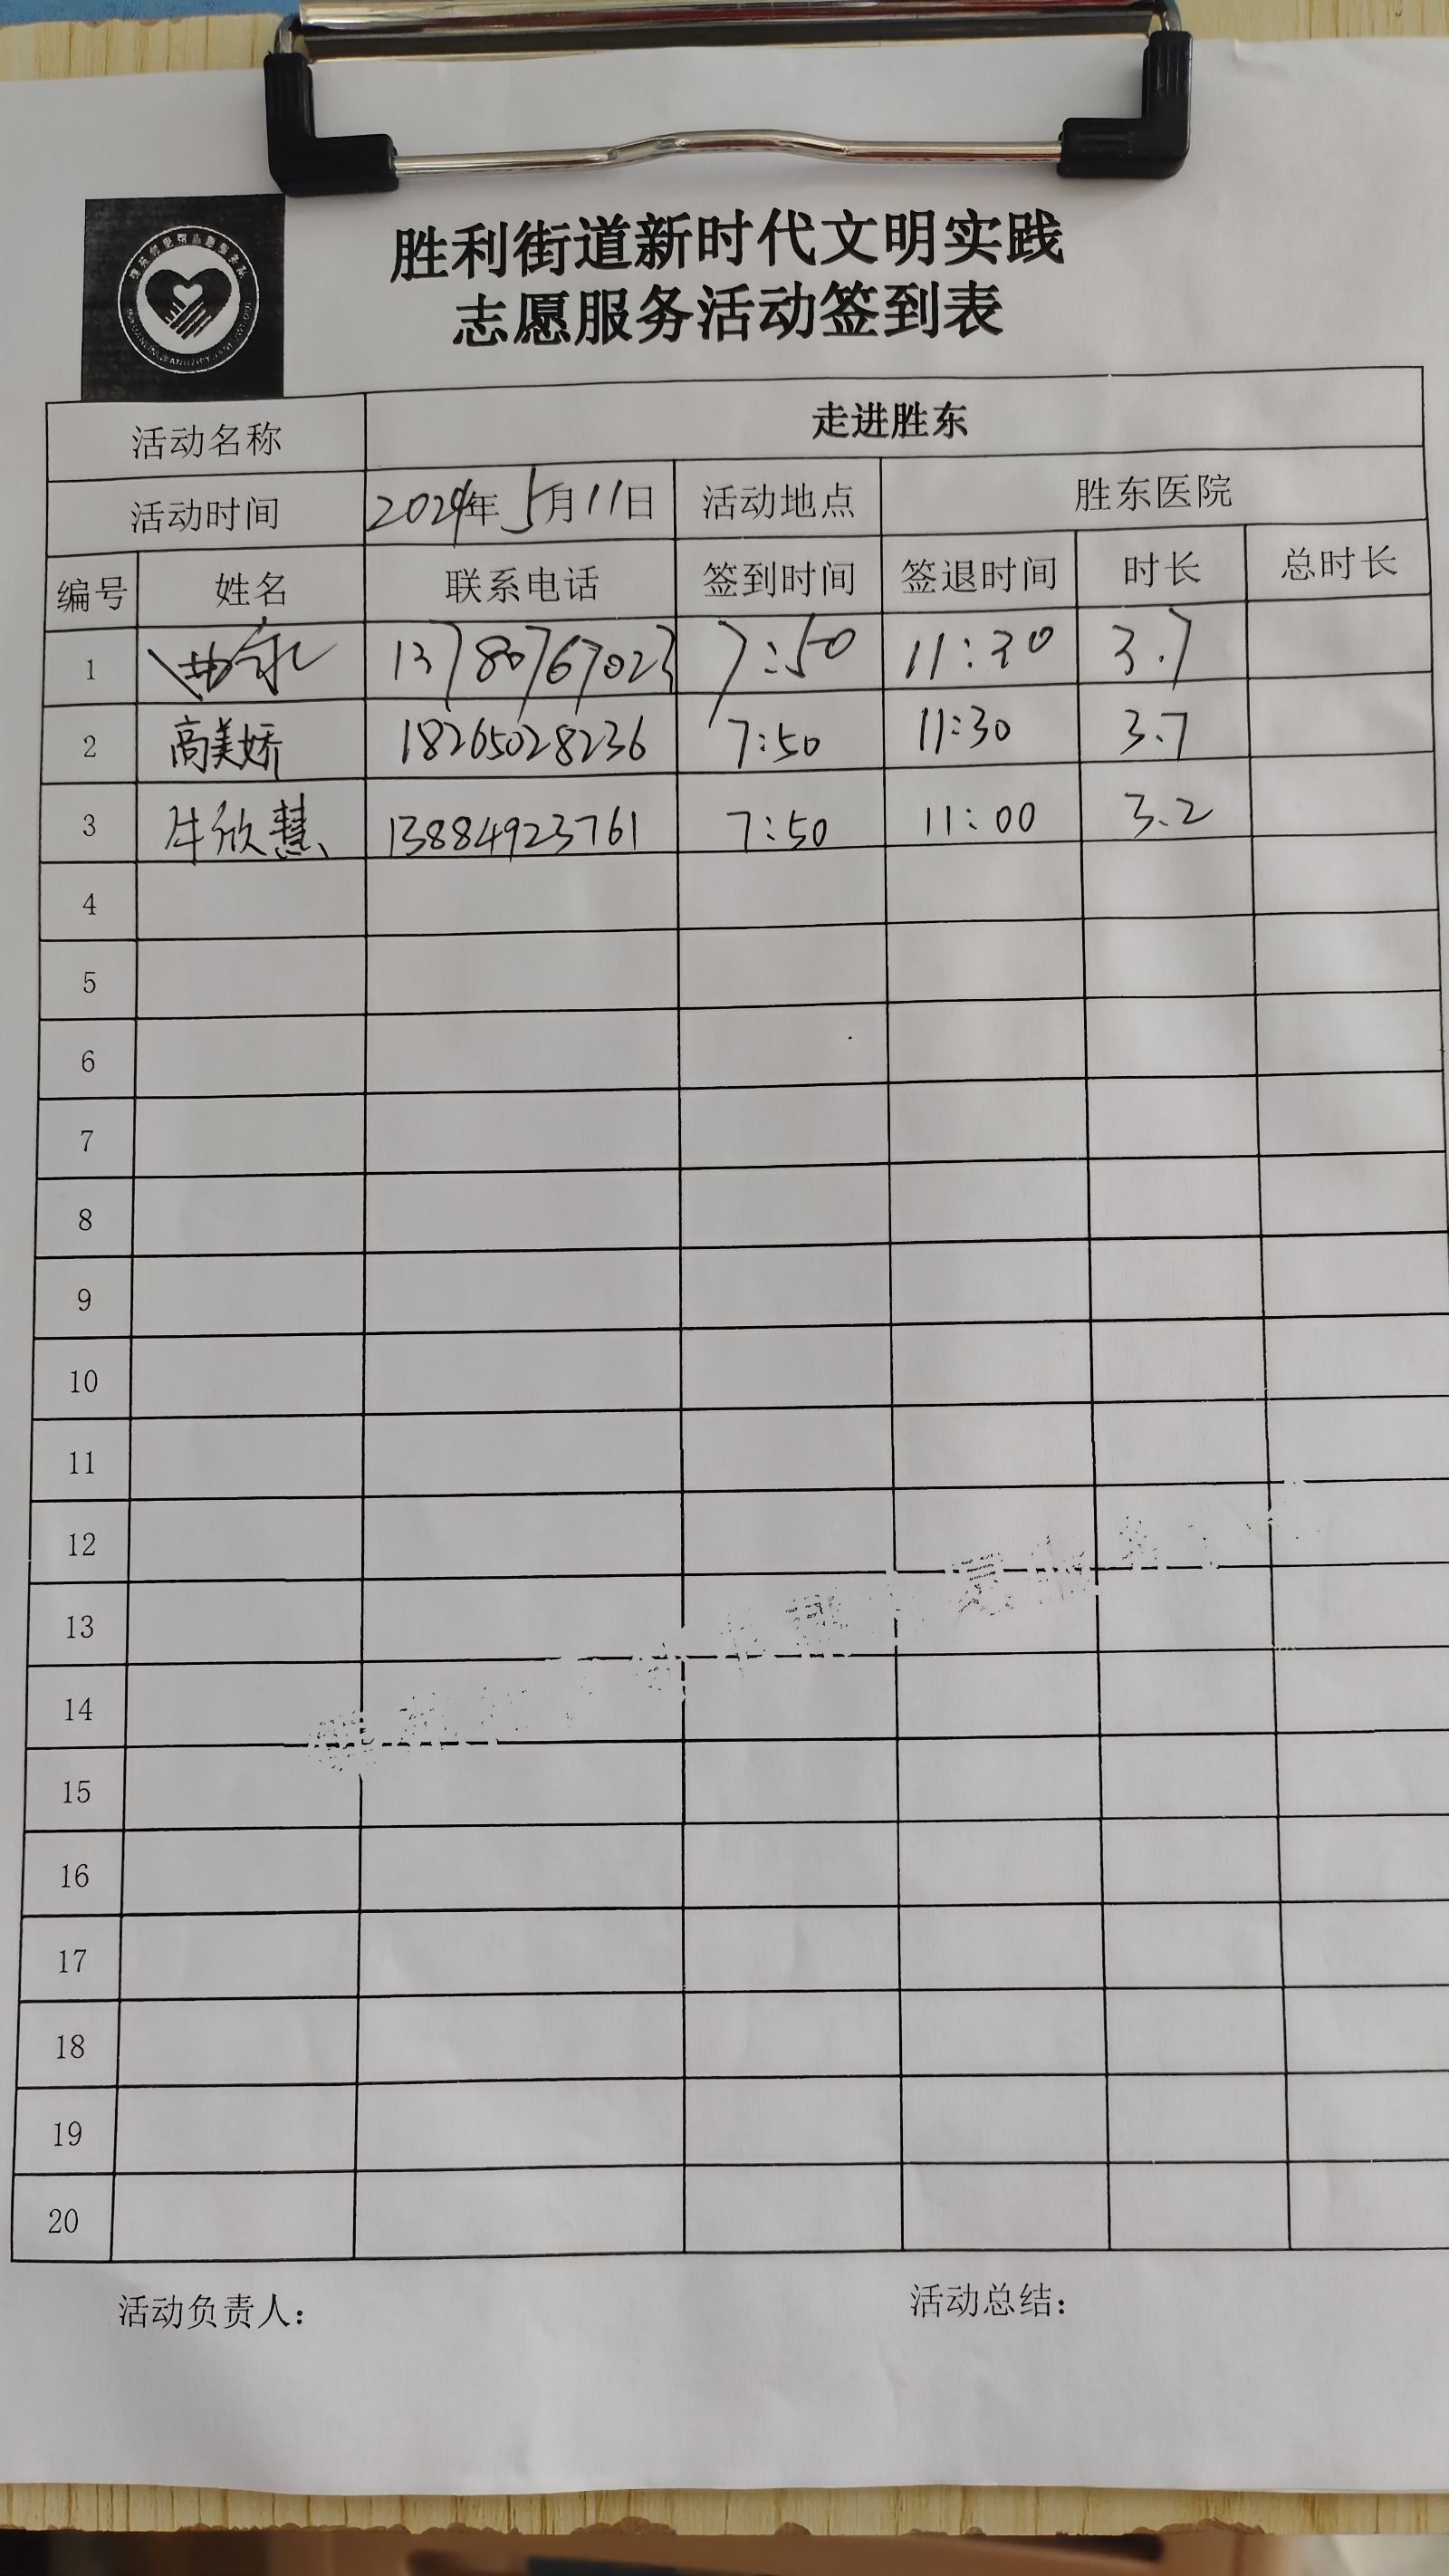 胜利街道新时代文明实践
志愿服务活动签到表
活动名称 走进胜东
活动时间 2024年5月11日 活动地点 胜东医院
编号 姓名 联系电话 签到时间 签退时间 时长 总时长
1 13780767023 7:50 11:30 3.7
2 高美娇 18265028236 7:50 11:30 3.7
3 牛欣慧 13884923761 7:50 11:00 3.2
4
5
6
7
8
9
10
11
12
13
14
15
16
17
18
19
20
活动负责人： 活动总结：